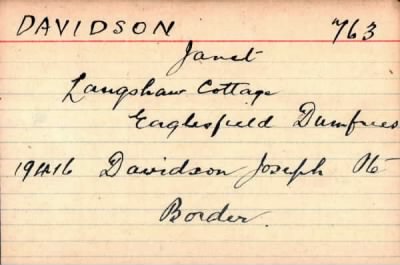 DAVIDSON 763
Janet
Langshaw Cottage
Eaglesfield Dumfries
19416 Davidson Joseph Pte
Border.